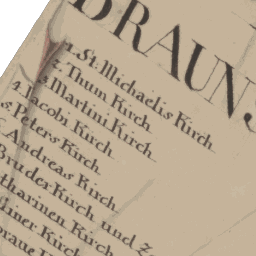 BRAUNS
1. St. Michaelis Kirch.
2. Thum Kirch.
3. Martini Kirch.
4. Jacobi Kirch.
5. Peters Kirch.
Andreas Kirch
Bruder Kirch und
tharinen Kirch
Kirch